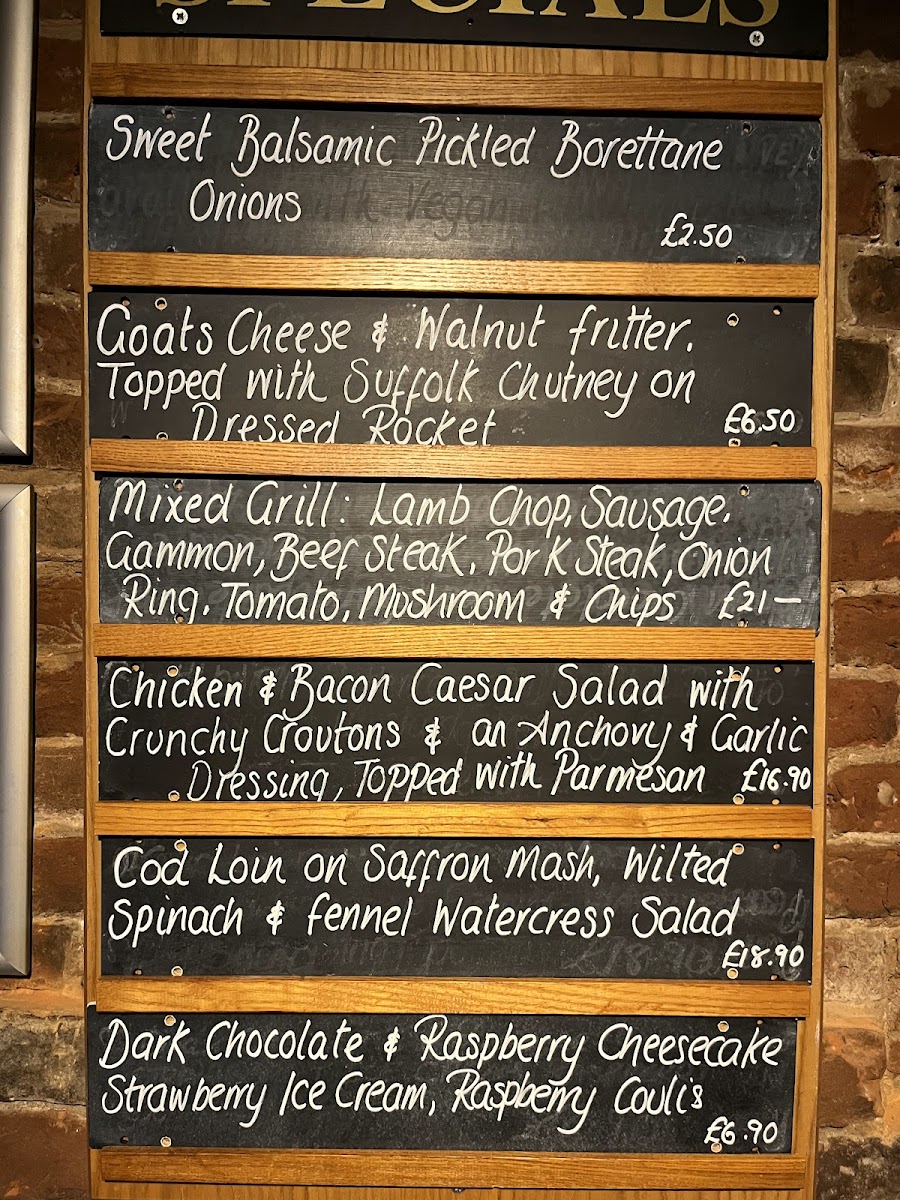 SPECIALS
Sweet Balsamic Pickled Borettane
Onions
£2.50
Goats Cheese & Walnut fritter.
Topped with Suffolk Chutney on
Dressed Rocket £6.50
Mixed Grill: Lamb Chop, Sausage,
Gammon, Beef Steak, Pork Steak, Onion
Ring, Tomato, Mushroom & Chips £21—
Chicken & Bacon Caesar Salad with
Crunchy Croutons & an Anchovy & Garlic
Dressing, Topped with Parmesan £16.90
Cod Loin on Saffron Mash, Wilted
Spinach & Fennel Watercress Salad
£18.90
Dark Chocolate & Raspberry Cheesecake
Strawberry Ice Cream, Raspberry Coulis
£6.90